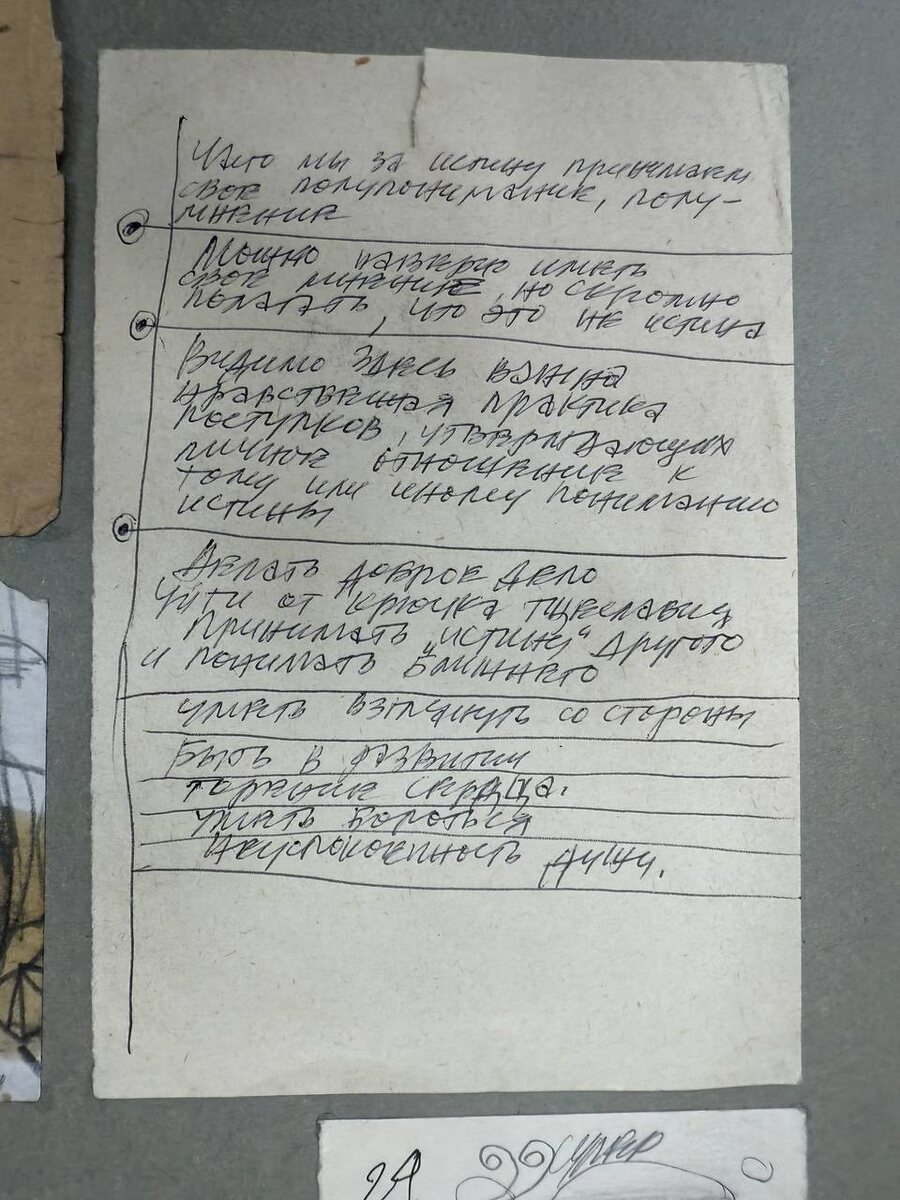 Часто мы за истину принимаем
свое полупонимание, полу-
мнение
Можно наверно иметь
свое мнение, но скромно
полагать, что это не истина
Видимо здесь важна
нравственная практика
поступков, утверждающих
личное отношение к
тому или иному пониманию
истины
Делать доброе дело
Уйти от крючка тщеславия
Принимать „истину“ другого
и понимать ближнего
уметь взглянуть со стороны
Быть в развитии
горение сердца.
уметь бороться
Неуспокоенность души.